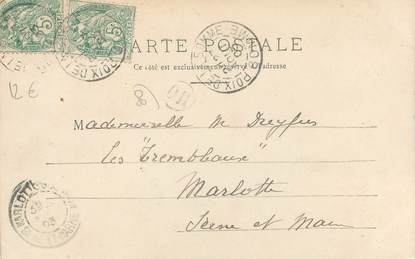 CARTE POSTALE
Ce côté est exclusivement réservé à l'adresse
12 €
80
Mademoiselle M Dreyfus
les "Trembleaux"
Marlotte
Seine et Marne